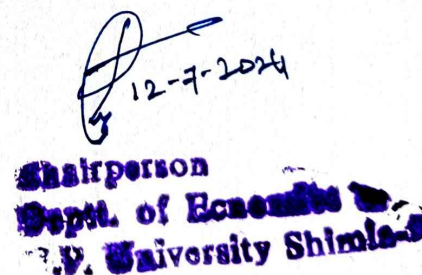 12-7-2024
Chairperson
Deptt. of Economics
.P. University Shimla-5